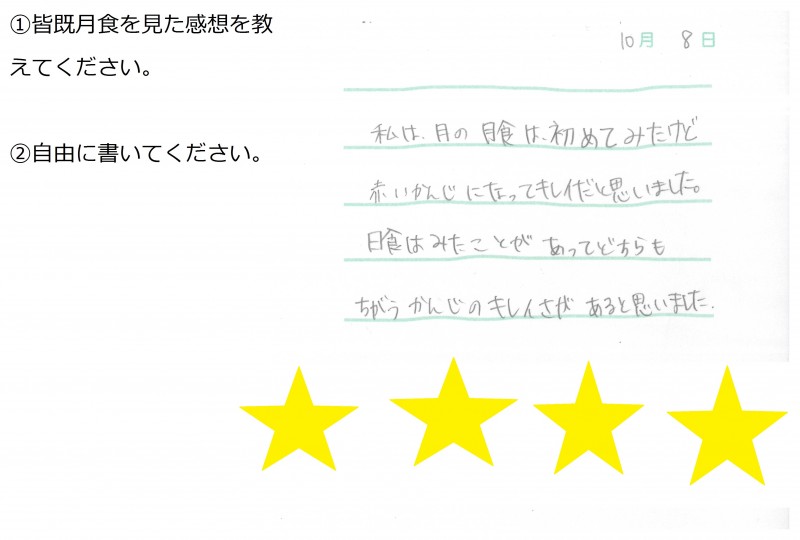 ①皆既月食を見た感想を教
えてください。
②自由に書いてください。
10月 8日
私は、月の 月食は、初めてみたけど
赤いかんじになってキレイだと思いました。
日食はみたことが あってどちらも
ちがう かんじのキレイさが あると思いました.